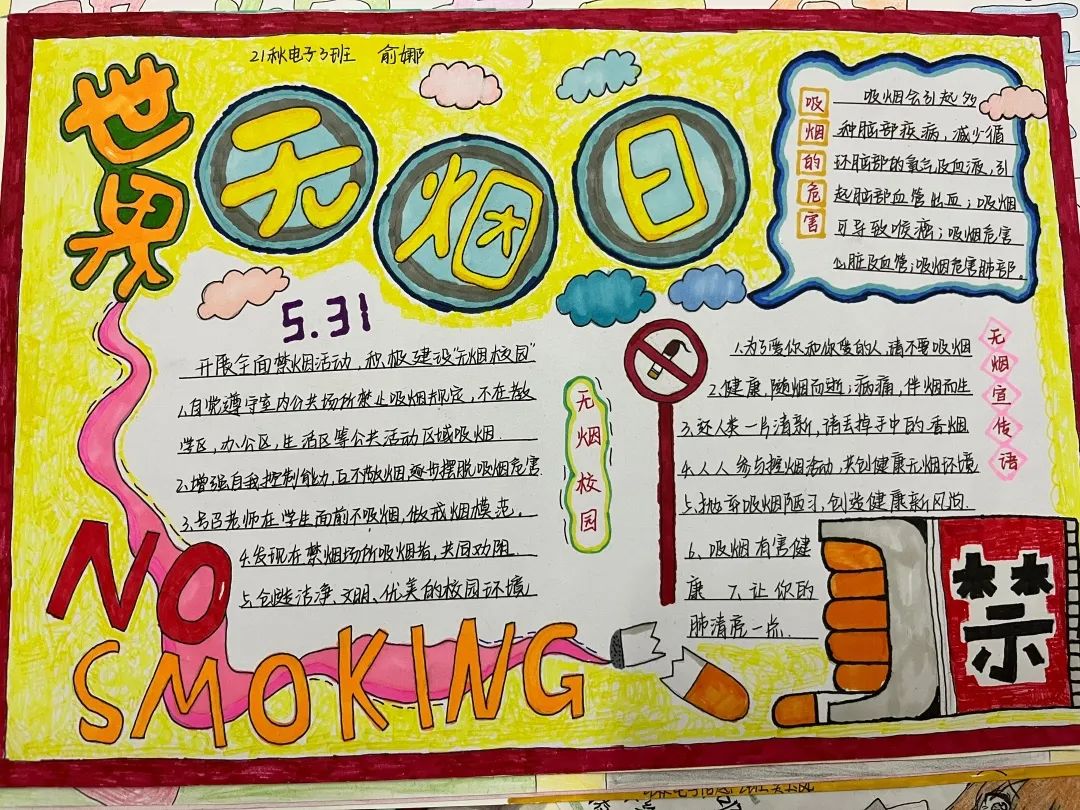 21秋电子3班 俞娜
世界
无烟日
5.31
吸烟的危害
吸烟会引起多
种脑部疾病,减少循
环脑部的氧气及血液,引
起脑部血管出血;吸烟
可导致喉癌;吸烟危害
心脏及血管;吸烟危害肺部。
开展全面禁烟活动,积极建设"无烟校园"
1.自觉遵守室内公共场所禁止吸烟规定,不在教
学区,办公区,生活区等公共活动区域吸烟.
2.增强自我控制能力,互不敬烟,逐步摆脱吸烟危害
3.号召老师在学生面前不吸烟,做戒烟模范。
4.发现在禁烟场所吸烟者,共同劝阻.
5.创造洁净、文明、优美的校园环境
无烟校园
无烟宣传语
1.为了爱你和你爱的人,请不要吸烟
2.健康,随烟而逝;病痛,伴烟而生
3.还人类一片清新,请丢掉手中的香烟
4.人人参与控烟活动,共创健康无烟环境
5.抛弃吸烟陋习,创造健康新风尚.
6、吸烟有害健
康 7、让你的
肺清亮一点.
NO
SMOKING
禁